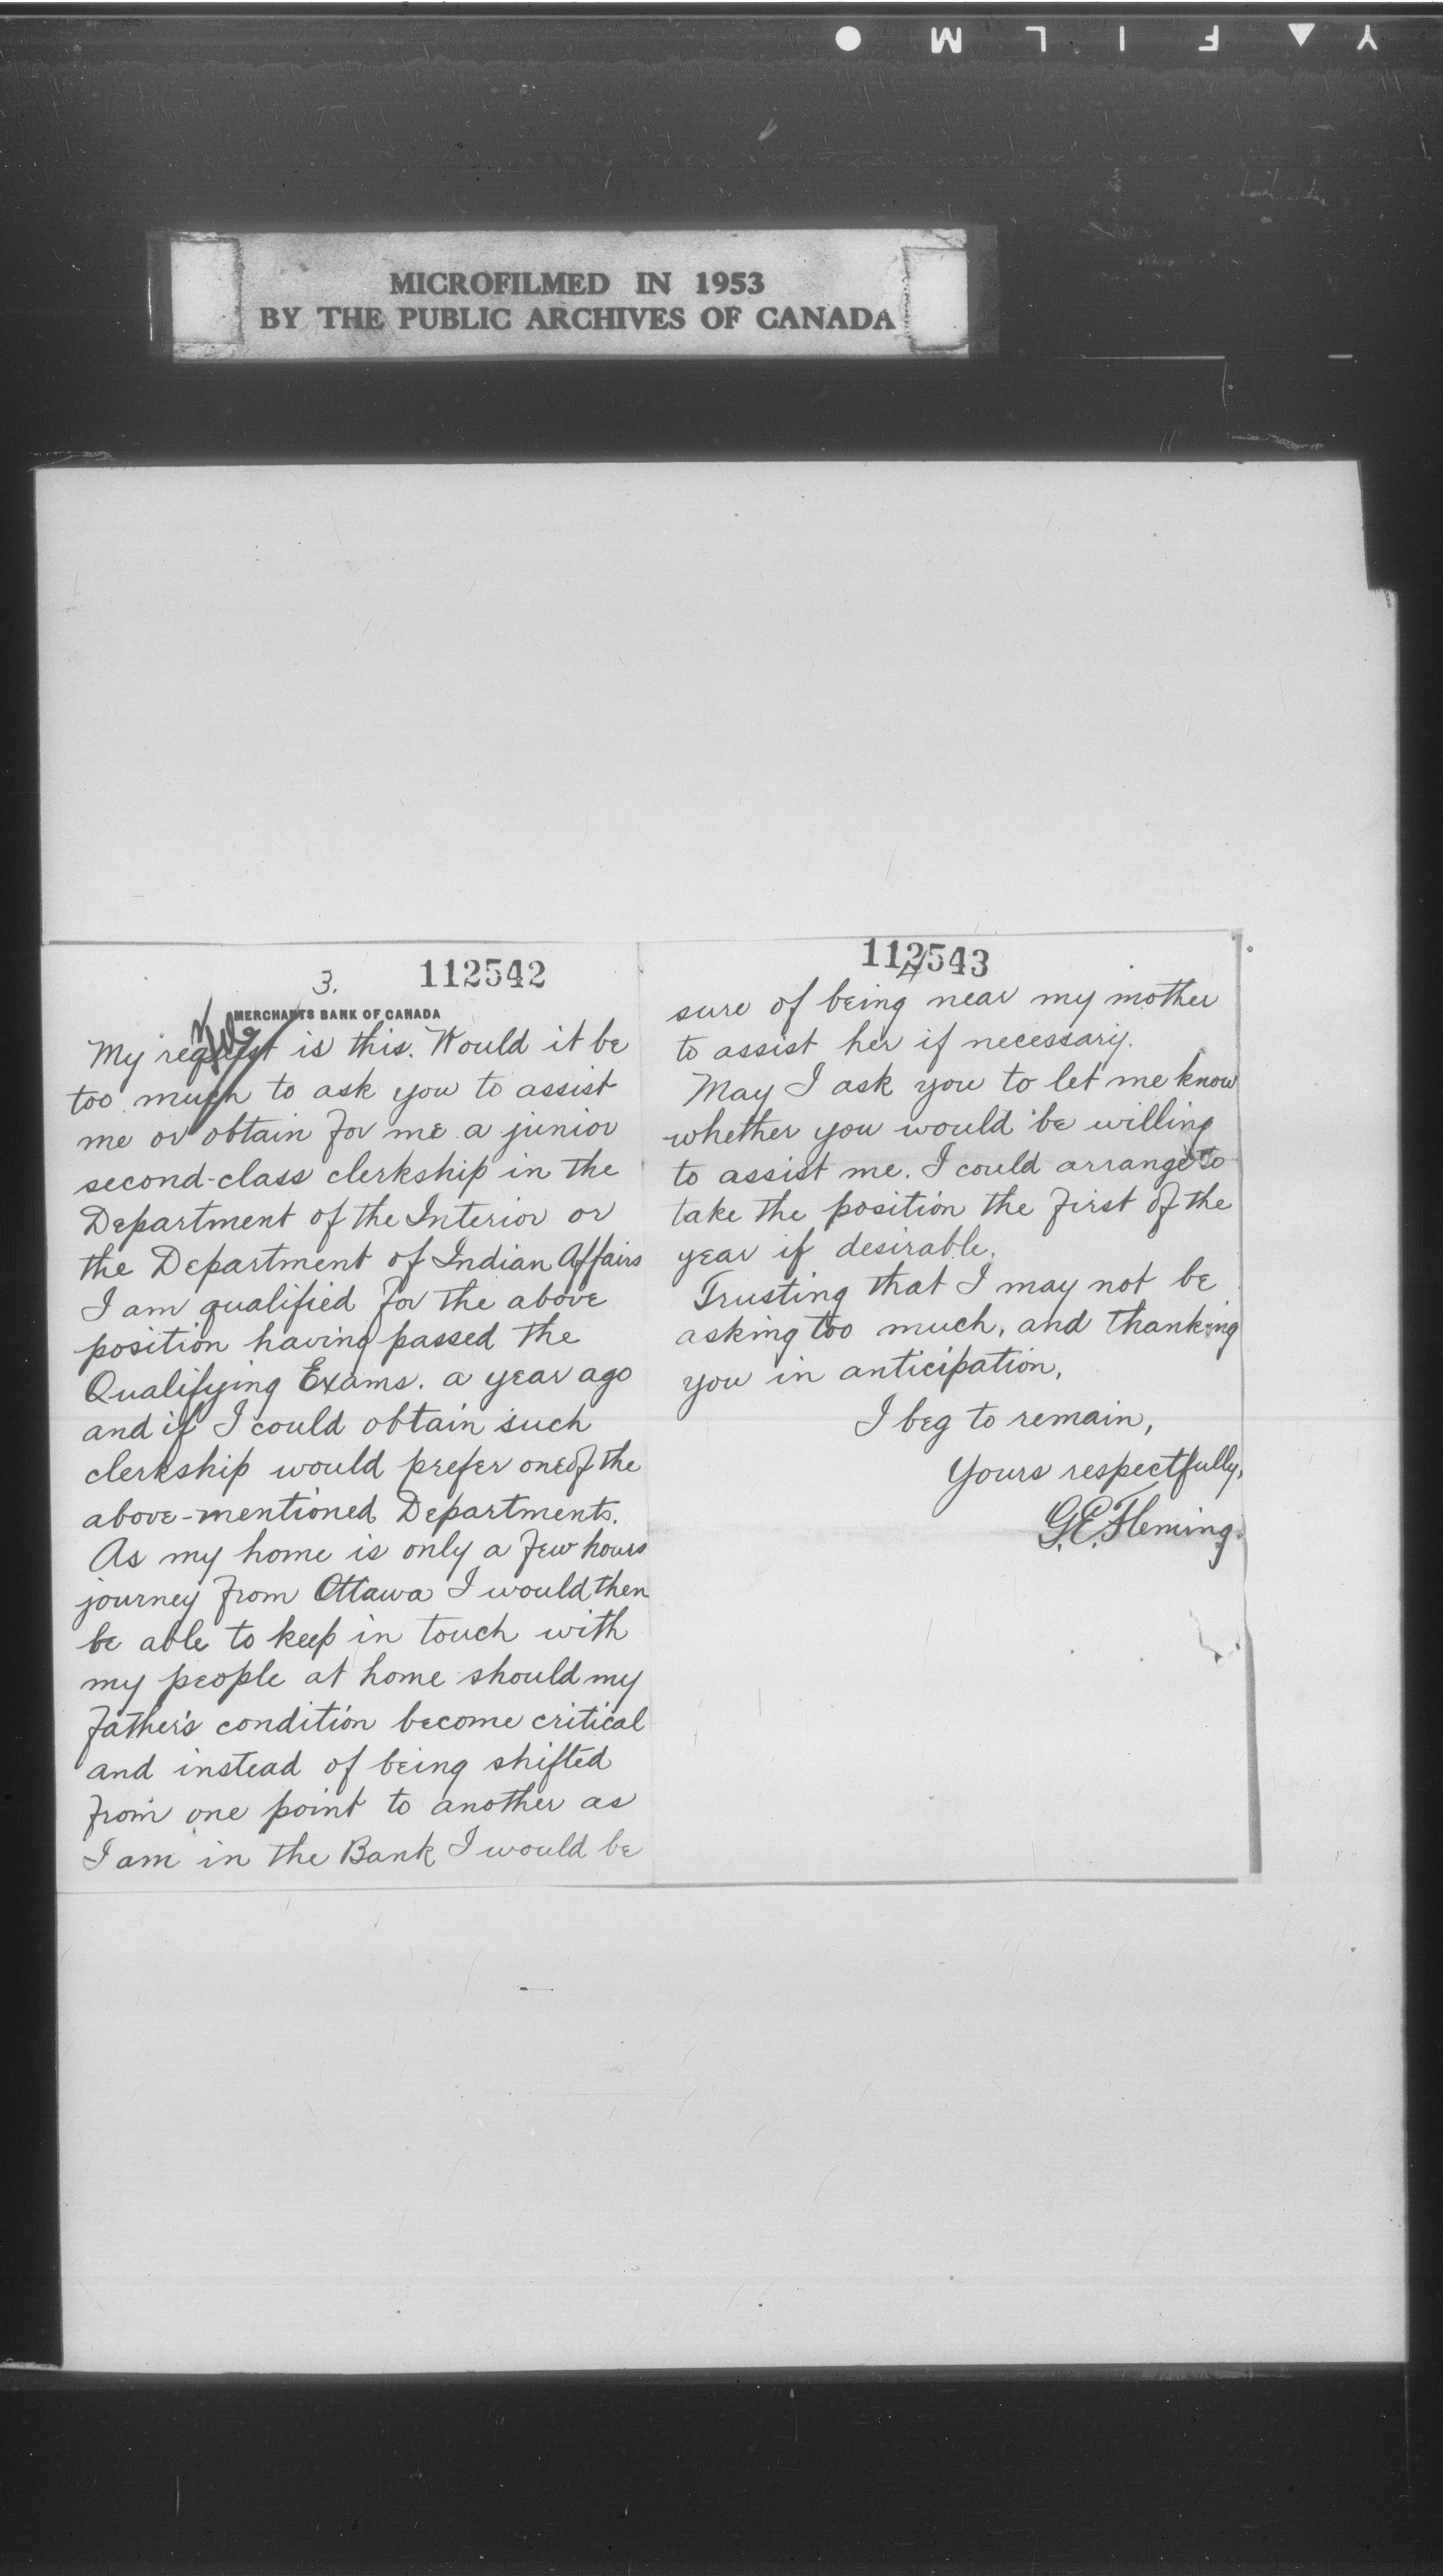 Y ▲ F I L M ●
MICROFILMED IN 1953
BY THE PUBLIC ARCHIVES OF CANADA
3. 112542
MERCHANTS BANK OF CANADA
My request is this. Would it be
too much to ask you to assist
me or obtain for me a junior
second-class clerkship in the
Department of the Interior or
the Department of Indian Affairs
I am qualified for the above
position having passed the
Qualifying Exams. a year ago
and if I could obtain such
clerkship would prefer one of the
above-mentioned Departments.
As my home is only a few hours
journey from Ottawa I would then
be able to keep in touch with
my people at home should my
father's condition become critical
and instead of being shifted
from one point to another as
I am in the Bank I would be
112543
4
sure of being near my mother
to assist her if necessary.
May I ask you to let me know
whether you would be willing
to assist me. I could arrange to
take the position the first of the
year if desirable.
Trusting that I may not be
asking too much, and thanking
you in anticipation,
I beg to remain,
Yours respectfully,
G. E. Fleming.